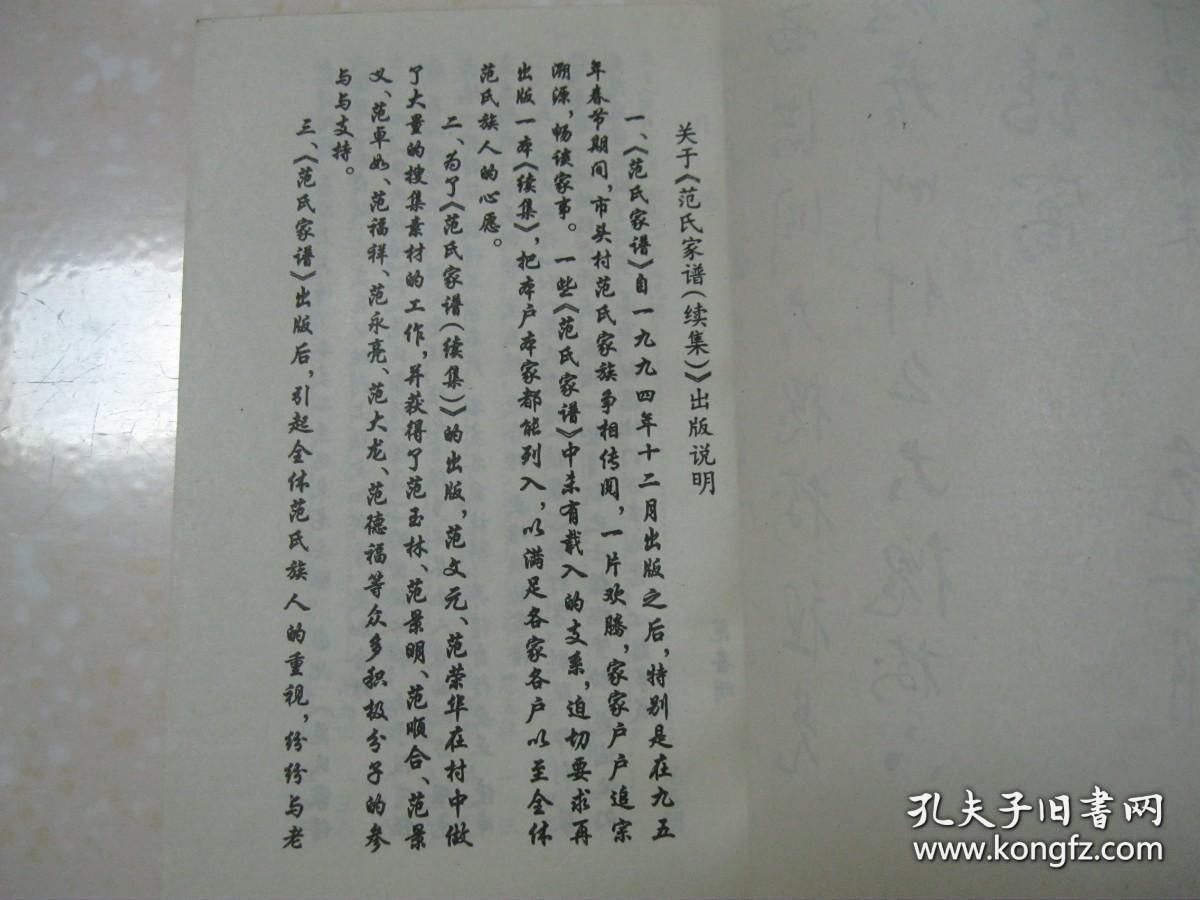 关于《范氏家谱(续集)》出版说明
一、《范氏家谱》自一九九四年十二月出版之后,特别是在九五
年春节期间,市头村范氏家族争相传阅,一片欢腾,家家户户追宗
溯源,畅谈家事。一些《范氏家谱》中未有载入的支系,迫切要求再
出版一本《续集》,把本户本家都能列入,以满足各家各户以至全体
范氏族人的心愿。
二、为了《范氏家谱(续集)》的出版,范文元、范荣华在村中做
了大量的搜集素材的工作,并获得了范玉林、范景明、范顺合、范景
义、范卓如、范福祥、范永亮、范大龙、范德福等众多积极分子的参
与与支持。
三、《范氏家谱》出版后,引起全体范氏族人的重视,纷纷与老
孔夫子旧书网
www.kongfz.com